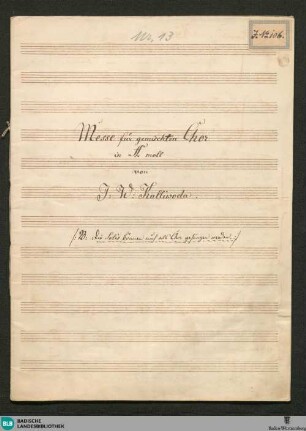 Nr. 13
Messe für gemischten Chor
in moll
von
J. W. Kalliwoda.
NB. Die Solis können auch als Chor gesungen werden.
BLB BADISCHE
LANDESBIBLIOTHEK
Baden-Württemberg